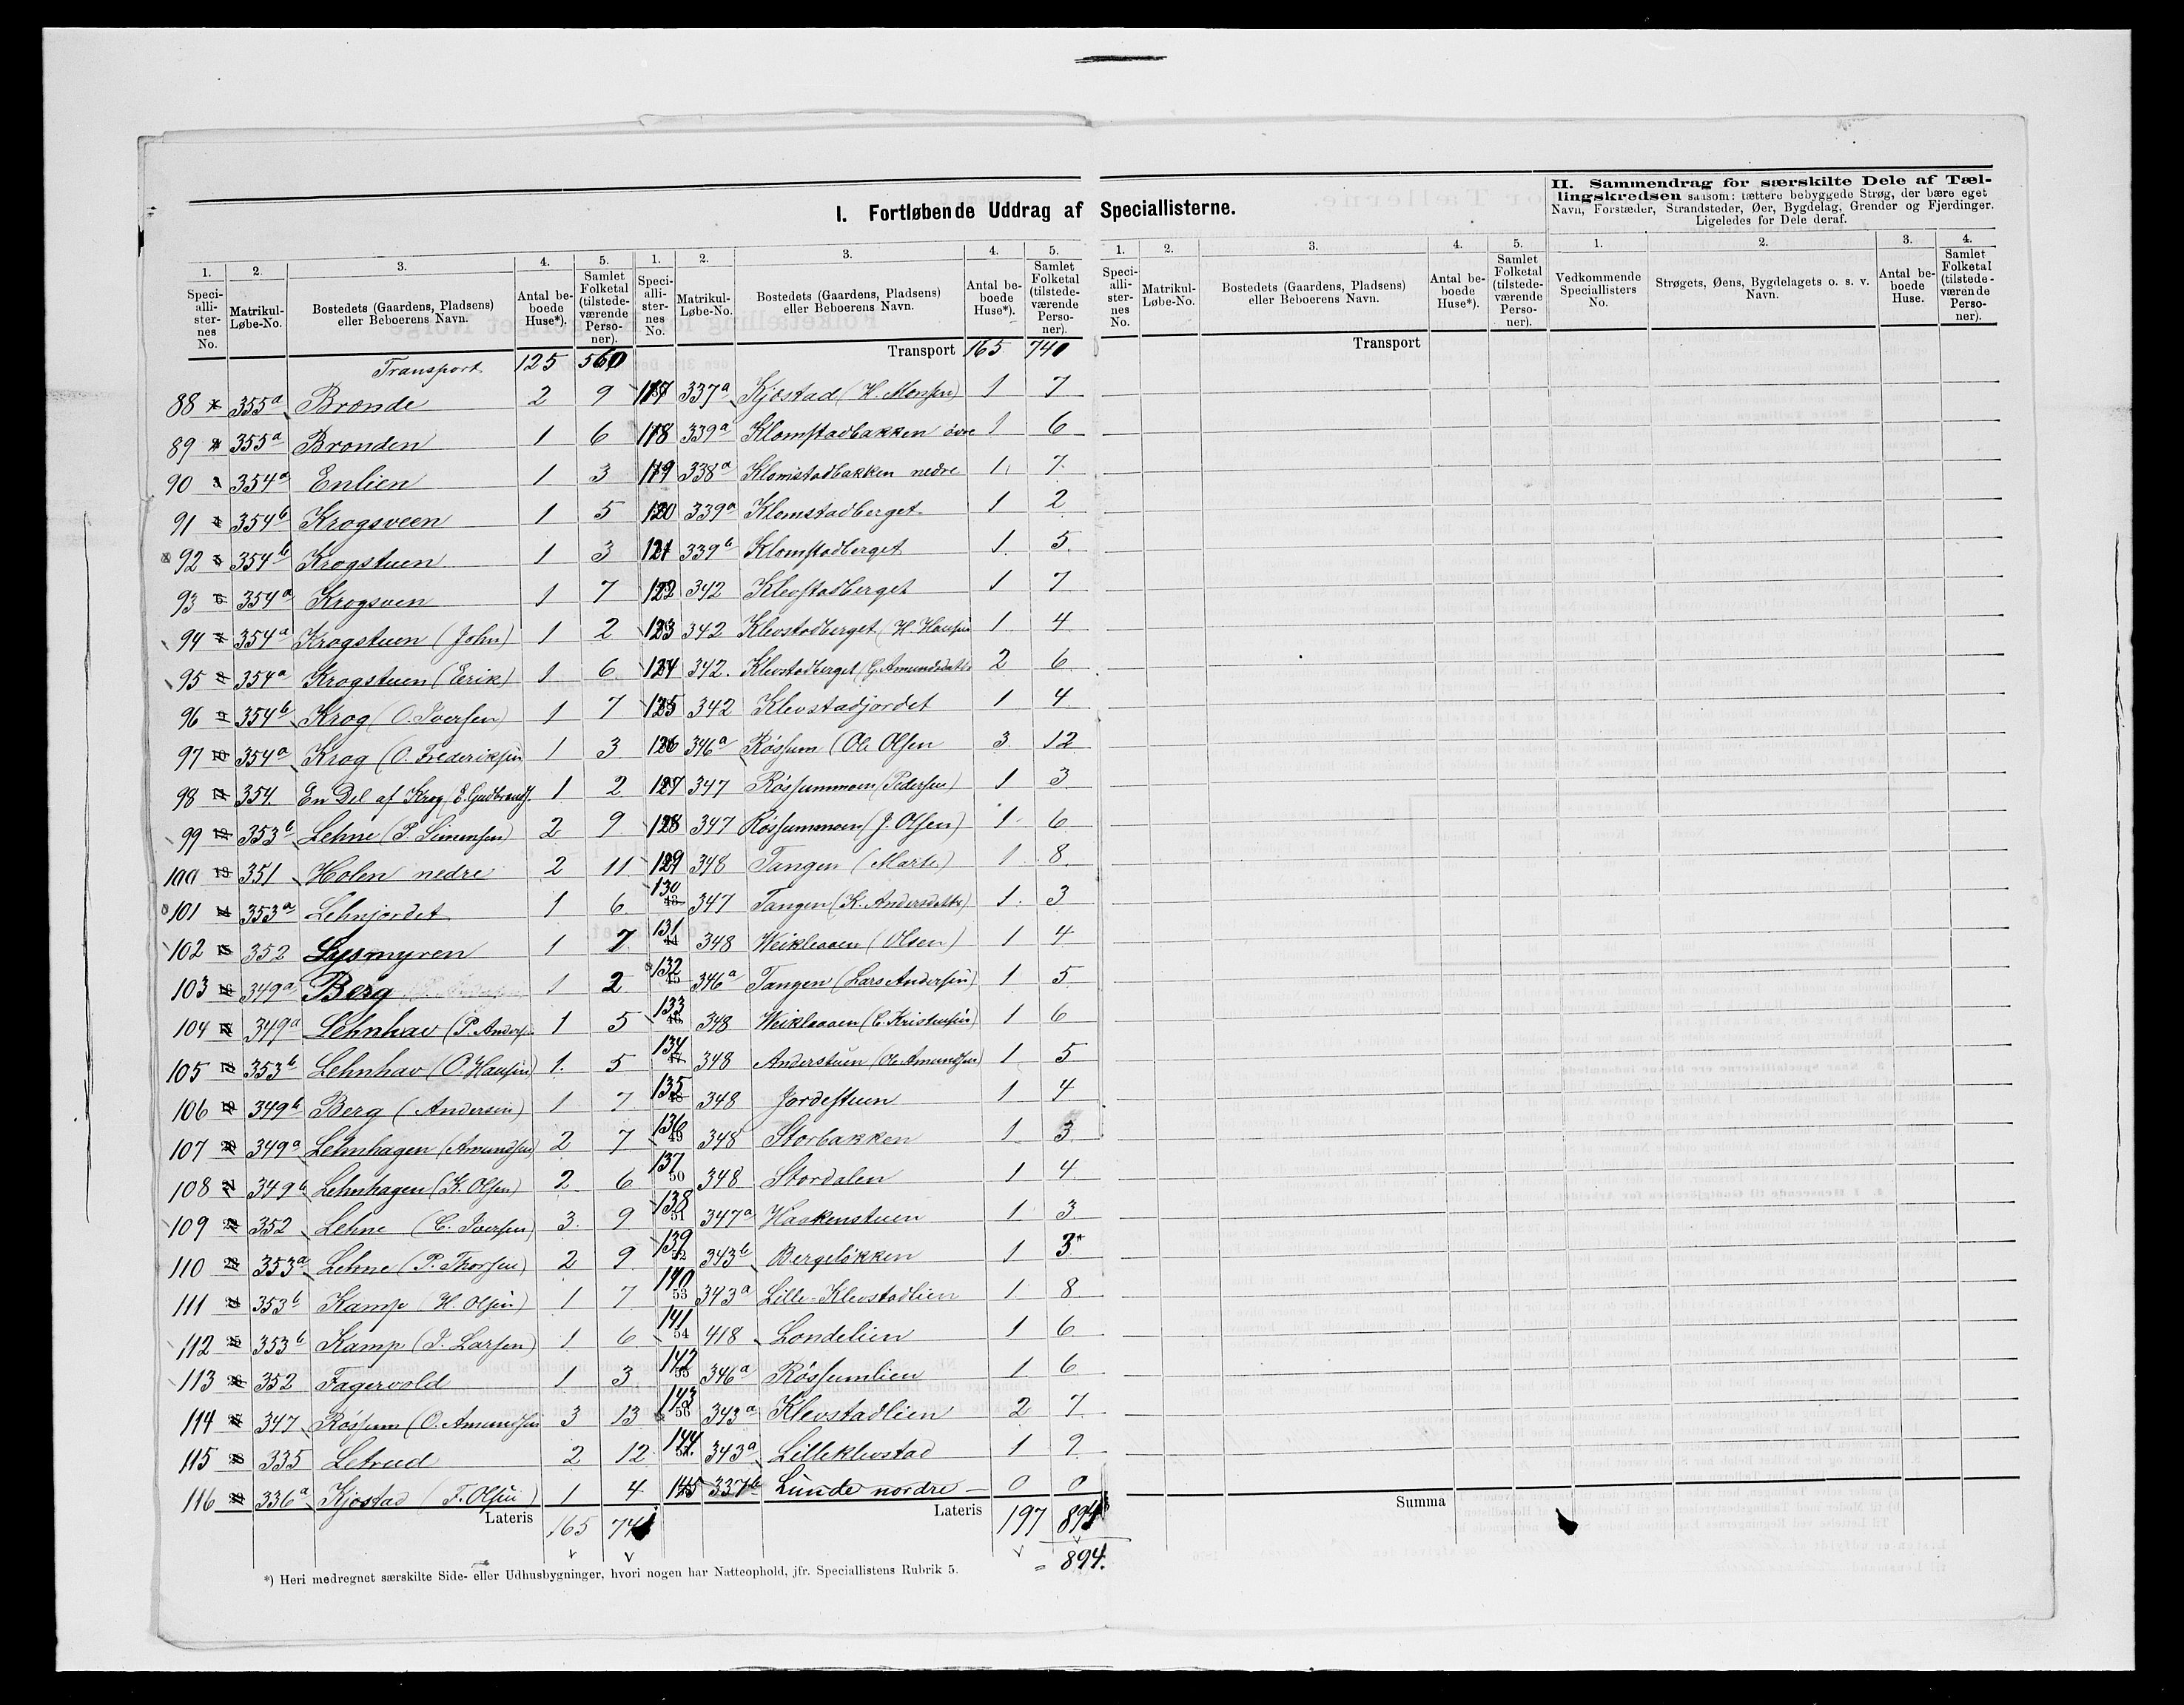 I. Fortløbende Uddrag af Speciallisterne.
II. Sammendrag for særskilte Dele af Tæl-
lingskredsen saasom: tættere bebyggede Strøg, der bære eget
Navn, Forstæder, Strandsteder, Øer, Bygdelag, Grender og Fjerdinger.
Ligeledes for Dele deraf.
1. 2. 3. 4. 5.
Speci-alli-ster-nes No. Matrikul-Løbe-No. Bostedets (Gaardens, Pladsens) eller Beboerens Navn. Antal be-boede Huse*). Samlet Folketal (tilstede-værende Perso-ner).
Transport 125 560
88 355a Brønde 2 9
89 355a Brønden 1 6
90 354a Enlien 1 3
91 354b Krogsveen 1 5
92 354b Krogstuen 1 3
93 354a Krogsven 1 7
94 354a Krogstuen (John) 1 2
95 354a Krogstuen (Erik) 1 6
96 354b Krog (O. Iversen) 1 7
97 354a Krog (O. Frederiksen 1 3
98 354. En Del af Krog (E. Gudbrands. 1 2
99 353b Lehne (P. Simensen) 2 9
100 351 Holen nedre 2 11
101 353a Lehnjordet 1 6
102 352 Lysmyren 1 7
103 349a Berg 1 2
104 349a Lehnhav (P. Anders. 1 5
105 353b Lehnhav (O. Hansen) 1. 5
106 349b Berg (Andersen) 1 7
107 349a Lehnhagen (Amundsen) 2 7
108 349b Lehnhagen (K. Olsen) 2 6
109 352 Lehne (C. Iversen) 3. 9
110 353a Lehne (P. Thorsen) 2 9
111 353b Kamp (H. Olsen) 1 7
112 353b Kamp (J. Larsen) 1 6
113 352 Fagervold 1 3
114 347 Røssum (O. Amundsen 3 13
115 335 Letrud 2 12
116 336a Kjostad (T. Olsen) 1 4
Lateris 165 74
1. 2. 3. 4. 5.
Speci-alli-ster-nes No. Matrikul-Løbe-No. Bostedets (Gaardens, Pladsens) eller Beboerens Navn. Antal be-boede Huse*). Samlet Folketal (tilstede-værende Perso-ner).
Transport 165 740
117 337a Kjøstad (H. Monsen) 1 7
118 339a Klomstadbakken øvre 1 6
119 338a Klomstadbakken nedre 1 7
120 339a Klomstadberget 1 2
121 339b Klomstadberget 1 5
122 342 Klevstadberget 1 7
123 342 Klevstadberget (H. Hansen 1 4
124 342. Klevstadberget (G. Amundsdatter 2 6
125 342 Klevstadjordet 1 4
126 346a Røssum (Ole Olsen 3 12
127 347 Røssummoen (Pedersen) 1 3
128 347 Røssummoen (J. Olsen) 1 6
129 348 Tangen (Marte) 1 8
130 347 Tangen (K. Andersdatter) 1 3
131 348 Weiklaaen (Olsen) 1 4
132 346a Tangen (Lars Andersen) 1 5
133 348 Weiklaaen (C. Kristensen) 1 6
134 348 Anderstuen (Ole Amundsen) 1 5
135 348 Jordestuen 1 4
136 348 Storbakken 1 3
137 50 348 Stordalen 1 4
138 51 347a Haakenstuen 1 3
139 52 343b Bergeløkken 1 3*
140 53 343a Lille-Klevstadlien 1 8
141 54 418 Londelien 1 6
142 55 346a Røssumlien 1 6
143 56 343a Klevstadlien 2 7
144 343a Lilleklevstad 1 9
145 337b Lunde nordre 0 0
Lateris 197 894
= 894.
1. 2. 3. 4. 5.
Speci-alli-ster-nes No. Matrikul-Løbe-No. Bostedets (Gaardens, Pladsens) eller Beboerens Navn. Antal be-boede Huse*). Samlet Folketal (tilstede-værende Perso-ner).
Transport
Summa
1. 2. 3. 4.
Vedkommende Speciallisters No. Strøgets, Øens, Bygdelagets o. s. v. Navn. Antal be-boede Huse. Samlet Folketal (tilstede-værende Perso-ner).
*) Heri medregnet særskilte Side- eller Udhusbygninger, hvori nogen har Natteophold, jfr. Speciallistens Rubrik 5.